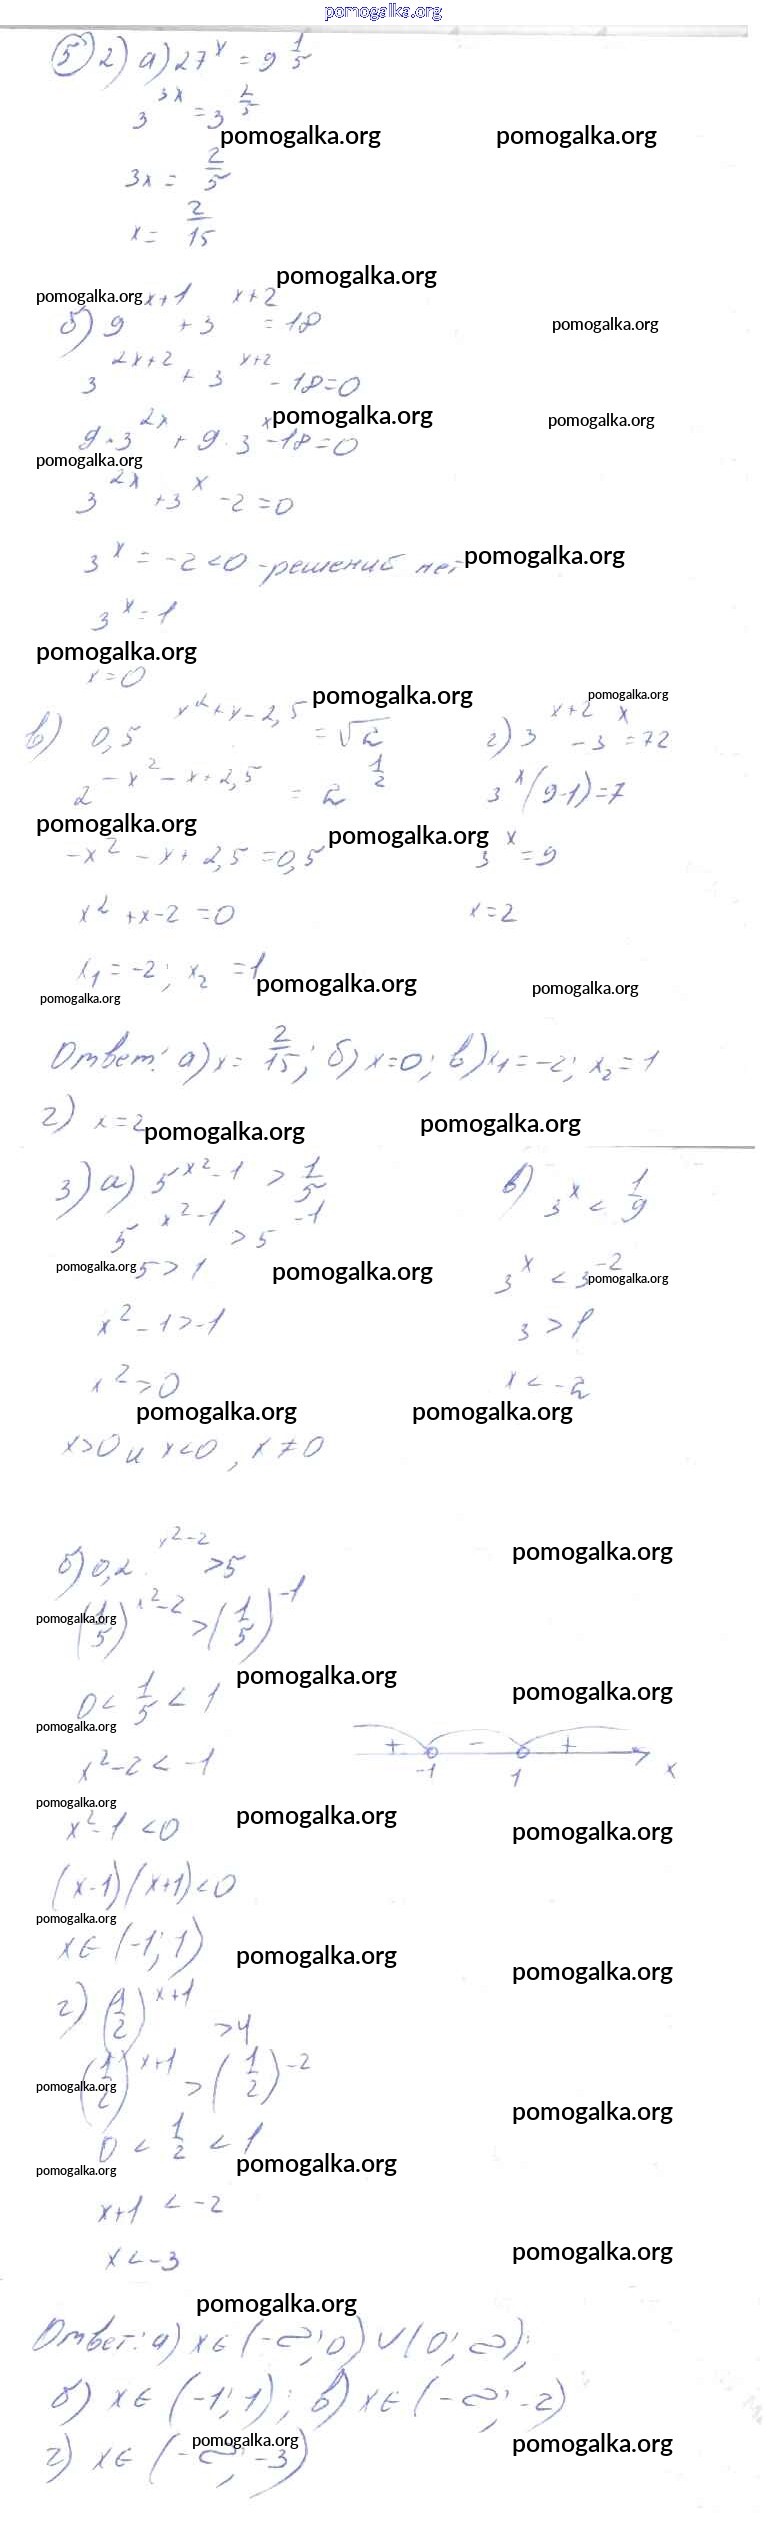 pomogalka.org
5) 2) а) 27^x = 9^(1/5)
3^(3x) = 3^(2/5)
pomogalka.org pomogalka.org
3x = 2/5
x = 2/15
pomogalka.org
pomogalka.org
б) 9^(x+1) + 3^(x+2) = 18
pomogalka.org
3^(2x+2) + 3^(x+2) - 18 = 0
pomogalka.org pomogalka.org
9·3^(2x) + 9·3^x - 18 = 0
pomogalka.org
3^(2x) + 3^x - 2 = 0
3^x = -2 < 0 - решений нет
pomogalka.org
3^x = 1
pomogalka.org
x = 0
pomogalka.org pomogalka.org
в) 0,5^(x²+x-2,5) = √2
г) 3^(x+2) - 3^x = 72
2^(-x²-x+2,5) = 2^(1/2)
3^x(9-1) = 7
pomogalka.org pomogalka.org
-x² - x + 2,5 = 0,5
3^x = 9
x² + x - 2 = 0
x = 2
x₁ = -2; x₂ = 1
pomogalka.org pomogalka.org
pomogalka.org
Ответ: а) x = 2/15; б) x = 0; в) x₁ = -2; x₂ = 1
г) x = 2
pomogalka.org pomogalka.org
3) а) 5^(x²-1) > 1/5
в) 3^x < 1/9
5^(x²-1) > 5^(-1)
pomogalka.org 5 > 1 pomogalka.org
3^x < 3^(-2)
pomogalka.org
x² - 1 > -1
3 > 1
x² > 0
x < -2
pomogalka.org pomogalka.org
x > 0 и x < 0, x ≠ 0
б) 0,2^(x²-2) > 5
pomogalka.org
(1/5)^(x²-2) > (1/5)^(-1)
pomogalka.org
0 < 1/5 < 1
pomogalka.org pomogalka.org
pomogalka.org
+ - +
-1 1 x
x² - 2 < -1
pomogalka.org
x² - 1 < 0
pomogalka.org pomogalka.org
(x-1)(x+1) < 0
pomogalka.org
x ∈ (-1; 1)
pomogalka.org pomogalka.org
г) (1/2)^(x+1) > 4
(1/2)^(x+1) > (1/2)^(-2)
pomogalka.org pomogalka.org
0 < 1/2 < 1
pomogalka.org pomogalka.org
x+1 < -2
x < -3
pomogalka.org
pomogalka.org
Ответ: а) x ∈ (-∞; 0) ∪ (0; ∞);
б) x ∈ (-1; 1); в) x ∈ (-∞; -2)
г) x ∈ (-∞; -3)
pomogalka.org pomogalka.org